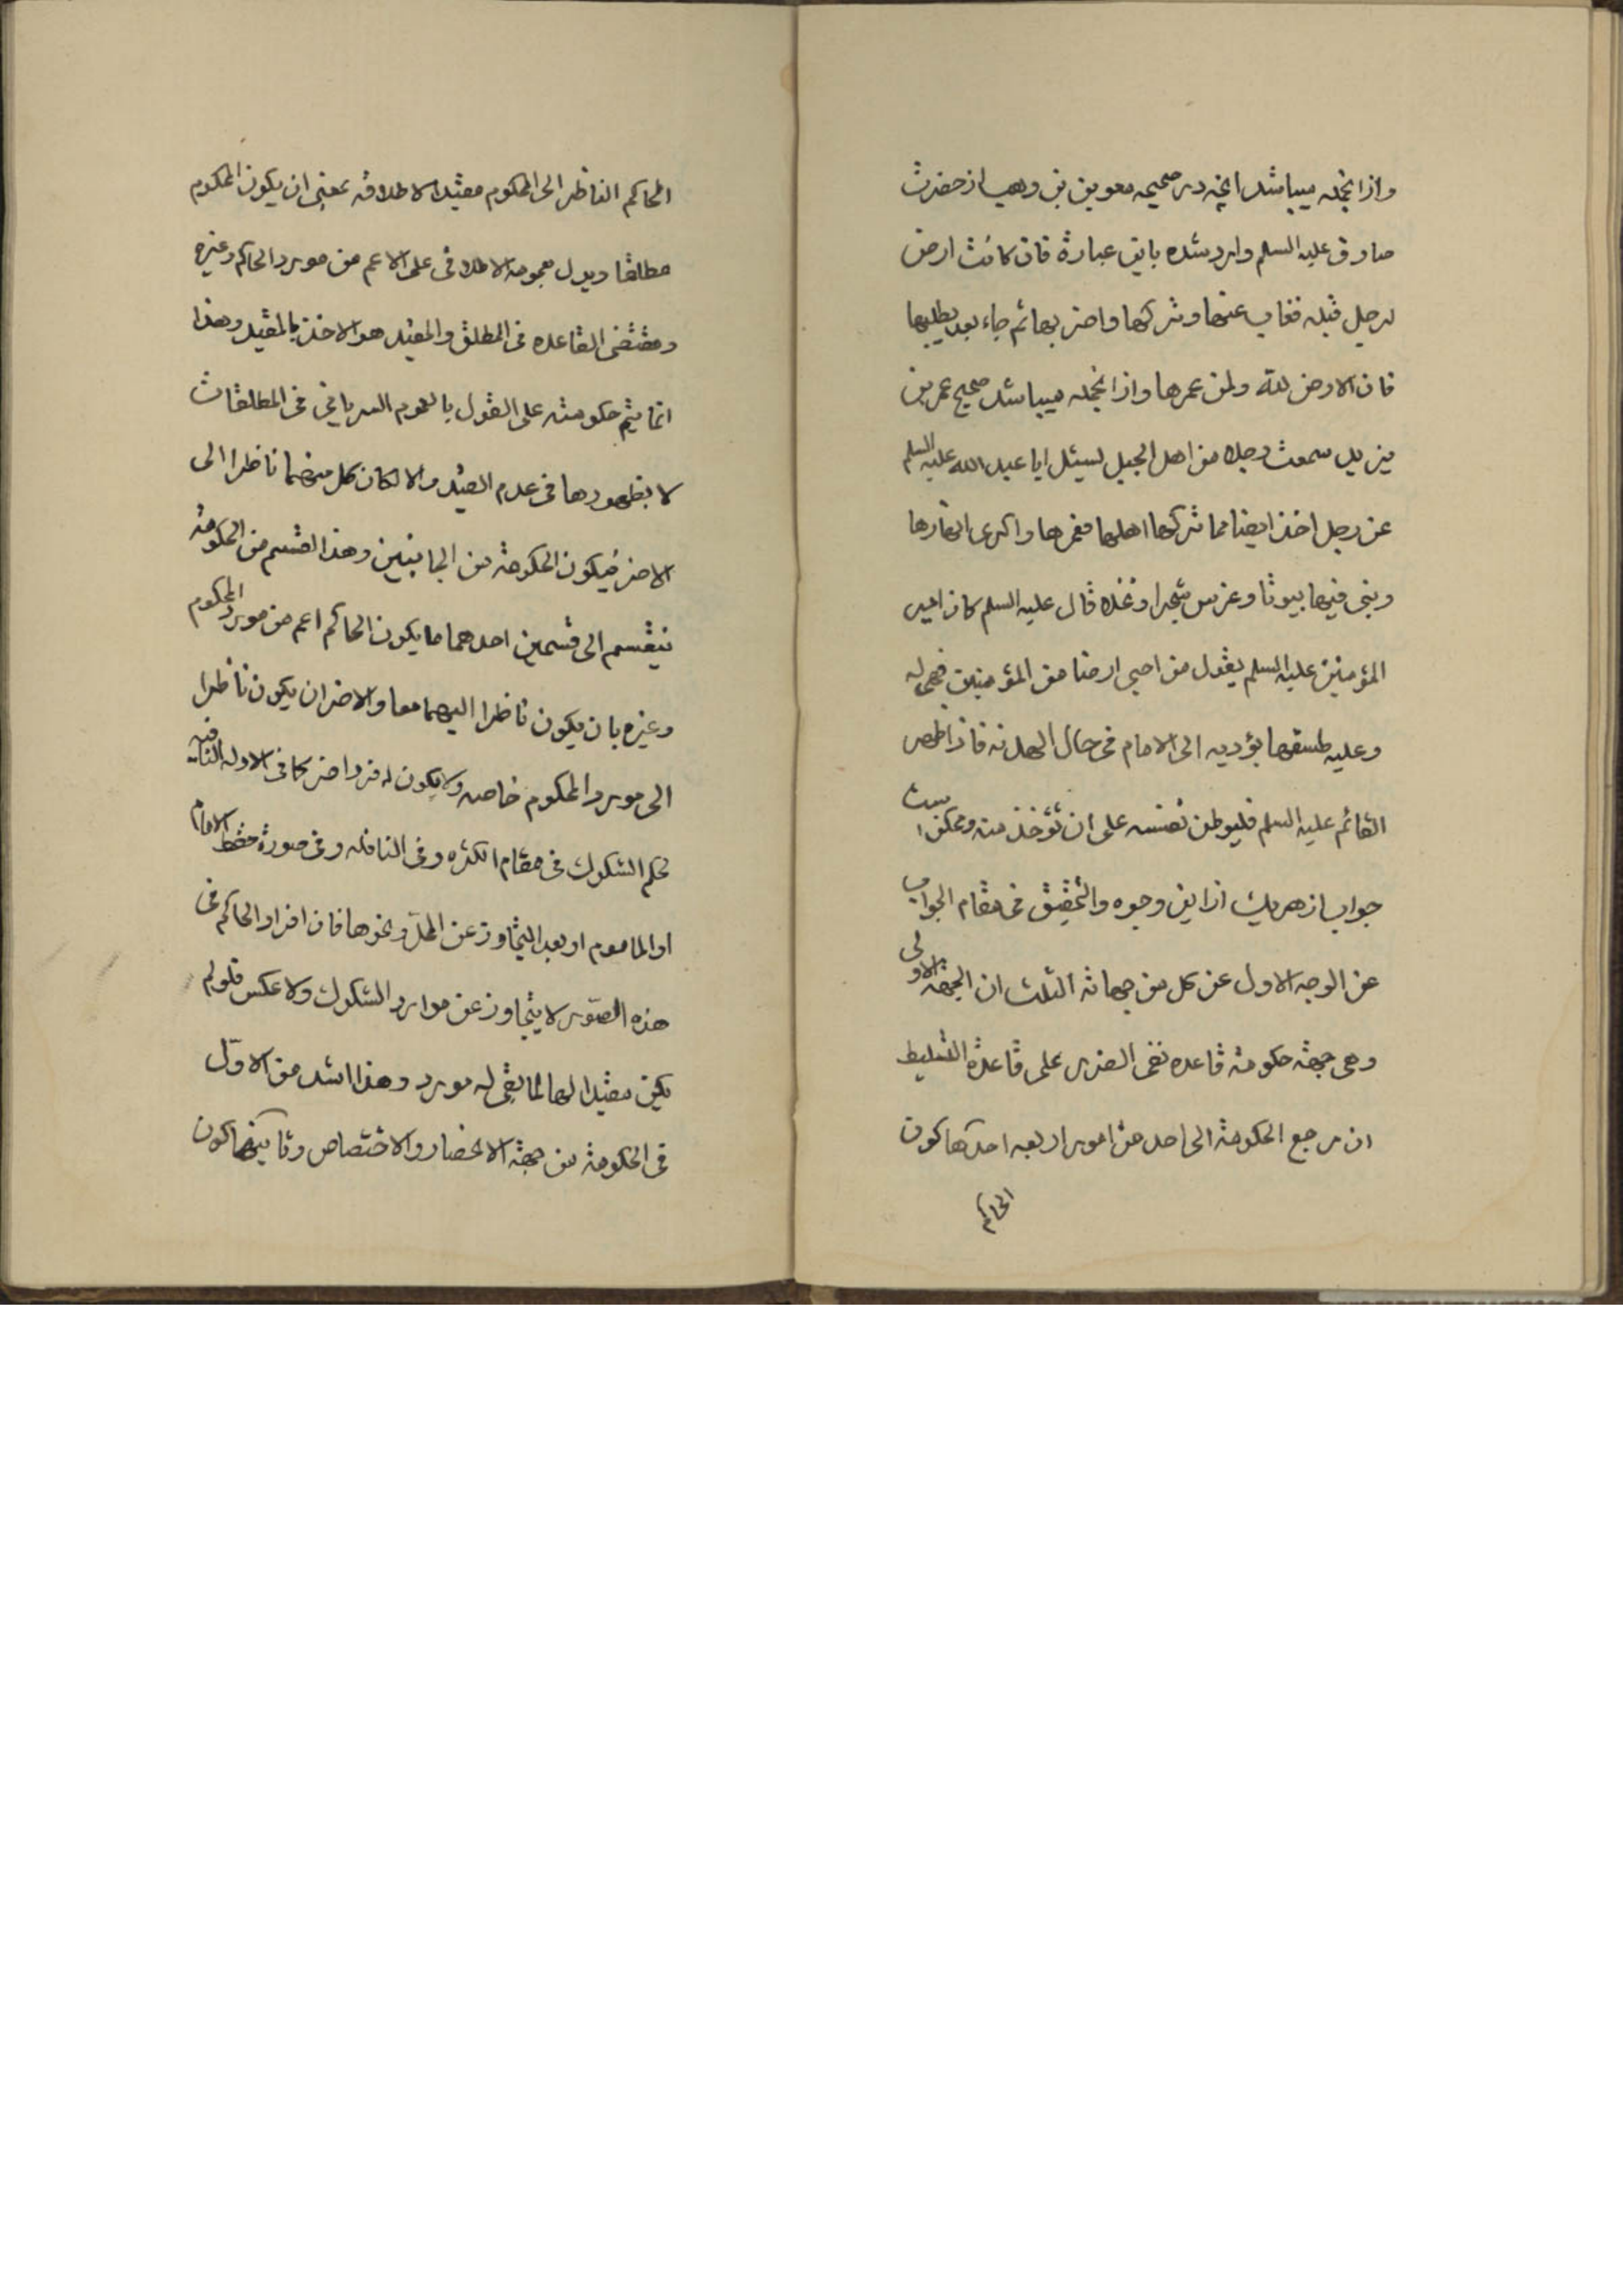 واز انجمله میباشد انچه در صحیحه معویة بن وهب از حضرت
صادق علیه السلم وارد شده باین عبارة فان کانت ارض
لرجل قبله فغاب عنها و ترکها و اخر بها ثم جاء بعد یطلبها
فان الارض لله ولمن عمرها واز انجمله میباشد صحیح عمر بن
یزید سمعت رجلا من اهل الجبل لیسئل ابا عبد الله علیه السلم
عن رجل اخذ ارضا مما ترکها اهلها فعمرها و اکری انهارها
و بنی فیها بیوتا و غرس شجرا و نخلا قال علیه السلم کان امیر
المؤمنین علیه السلم یقول من احیی ارضا من المؤمنین فهی له
و علیه طسقها یؤدیه الی الامام فی حال الهدنه فاذا ظهر
القائم علیه السلم فلیوطن نفسه علی ان تؤخذ منه و ممکن است
جواب از هریک از این وجوه والتحقیق فی مقام الجواب
عن الوجه الاول عن کل من جهاته الثلث ان الجهة الاولی
و هی جهة حکومة قاعده نفی الضرر علی قاعدة التسلیط
ان مرجع الحکومة الی احد من امور اربعه احدها کون
الحاکم
الحاکم الناظر الی المحکوم مقیدا لاطلاقه بمعنی ان یکون المحکوم
مطلقا و یدل بعمومه الاطلاقی علی الاعم من مورد الحاکم و غیره
و مقتضی القاعده فی المطلق والمقید هو الاخذ بالمقید و هذا
انما یتم حکومته علی القول بالعموم السریانی فی المطلقات
لا بظهورها فی عدم القید والا لکان کل منهما ناظرا الی
الاخر فیکون الحکومة من الجانبین و هذا القسم من الحکومة
ینقسم الی قسمین احدهما ما یکون الحاکم اعم من مورد المحکوم
و غیره بان یکون ناظرا الیهما معا والاخر ان یکون ناظرا
الی مورد المحکوم خاصه ولا یکون له فرد اخر کما فی الادله النافیه
لحکم الشکوک فی مقام الکثره و فی النافله و فی صورة حفظ الامام
او الماموم او بعد التجاوز عن المحلّ و نحوها فان افراد الحاکم فی
هذه الصّور لا یتجاوز عن موارد الشکوک ولا عکس فلو لم
یکن مقیدا لها لما بقی له مورد و هذا اشد من الاوّل
فی الحکومة من جهة الانحصار والاختصاص و ثانیها کون